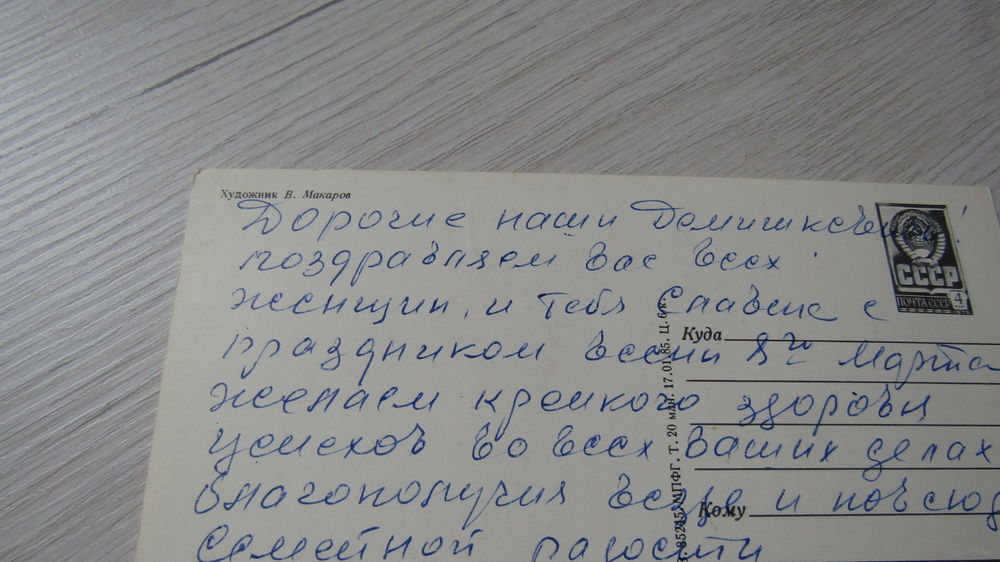 Художник В. Макаров
Дорогие наши !
поздравляем Вас всех
женщин, и тебя Славик с
праздником весны 8го Марта
желаем крепкого здоровья
успехов во всех Ваших делах
благополучия везде и повсюд
семейной радости
СССР
ПОЧТА СССР
4
Куда
Кому
МПФГ. Т. 20 млн. 17.01.85. Ц. 6 к.